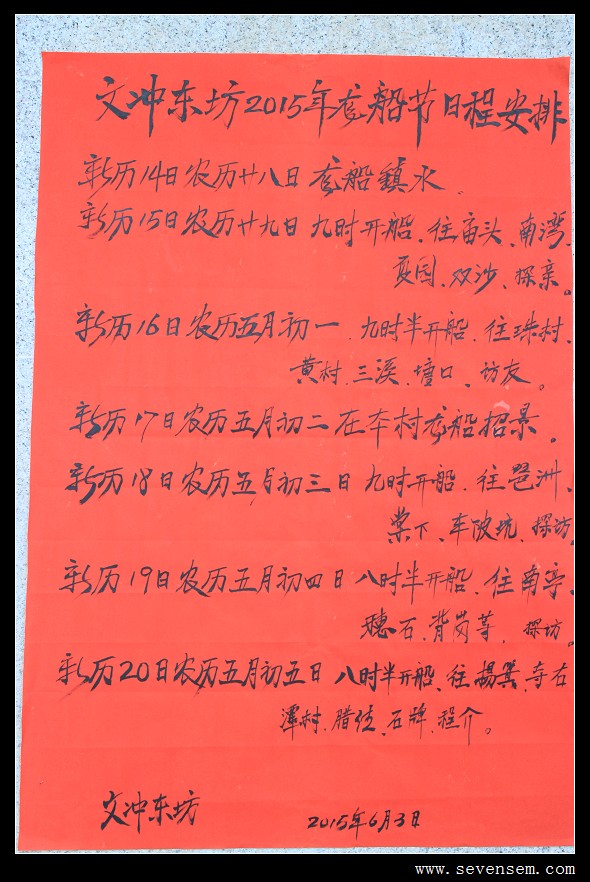 文冲东坊2015年龙船节日程安排
新历14日农历廿八日 龙船鎮水。
新历15日农历廿九日 九时开船、往庙头、南湾、
夏园、双沙、探亲。
新历16日农历五月初一、九时半开船、往珠村、
黄村、三溪、壇口、访友。
新历17日农历五月初二在本村龙船招景。
新历18日农历五月初三日 九时开船、往琶洲、
棠下、车陂坑、探访。
新历19日农历五月初四日 八时半开船、往南亭、
穗石、背岗等、探访。
新历20日农历五月初五日 八时半开船、往楊箕、寺右
潭村、腊佳、石牌、程介。
文冲东坊 2015年6月3日
www.sevensem.com